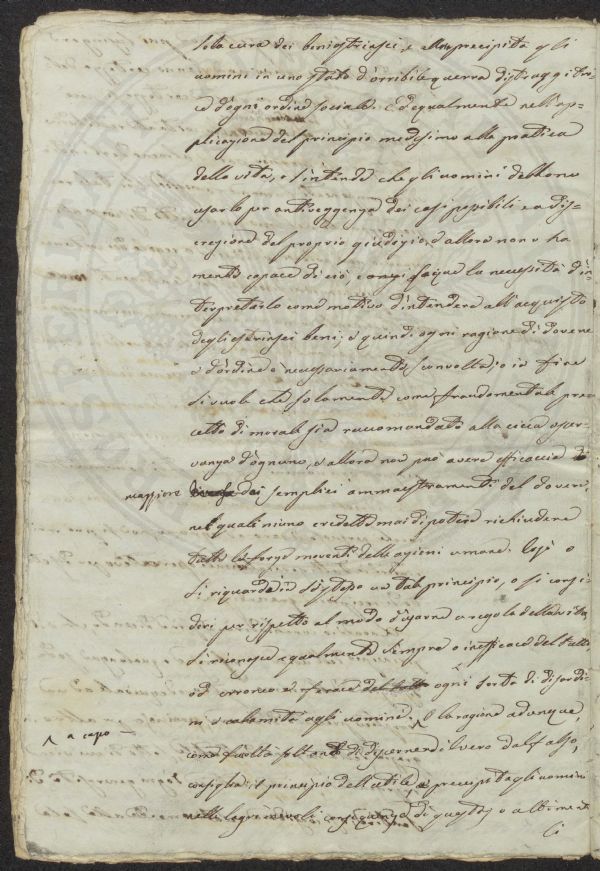 sola cura dei beni estrinseci, e allora precipita gli
uomini in uno stato d'orribile guerra distruggitri-
ce d'ogni ordine sociale. Ed egualmente nell'ap-
plicazione del principio medesimo alla pratica
della vita, o s'intende che gli uomini debbono
usarlo per antiveggenza dei casi possibili e a dis-
crezione del proprio giudizio, ed allora non v'ha
mente capace di ciò, e anzi nasce la necessità d'in-
terpretarlo come motivo d'intendere all'acquisto
degli estrinseci beni; e quindi ogni ragione di dovere
e d'ordine è necessariamente sconvolta; o in fine
si vuole che solamente come fraudomentale pre-
cetto di morale sia raccomandato alla cieca osser-
vanza d'ognuno, e allora non può avere efficacia
maggiore dei semplici ammaestramenti del dovere,
nel quale niuno credette mai di potere richiudere
tutte le forze moventi delle azioni umane. Così o
si riguarda in se stesso un tale principio, o si consi-
deri per rispetto al modo d'esserne a regola della vita,
si riconosce egualmente sempre o inefficace del tutto
od erroneo e ferace del tutto ogni sorta di disordi-
ni e calamità agli uomini. E la ragione adunque,
^ a capo —
come facoltà soltanto di discernere il vero dal falso,
consiglia il principio dell'utile, e precipita gli uomini
nelle lagrimevoli conseguenze di questo; o altrimenti
li